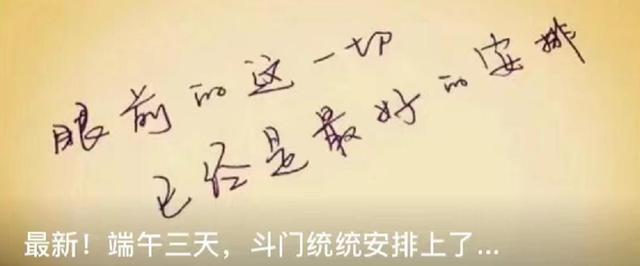 眼前的这一切
已经是最好的安排
最新！端午三天，斗门统统安排上了...